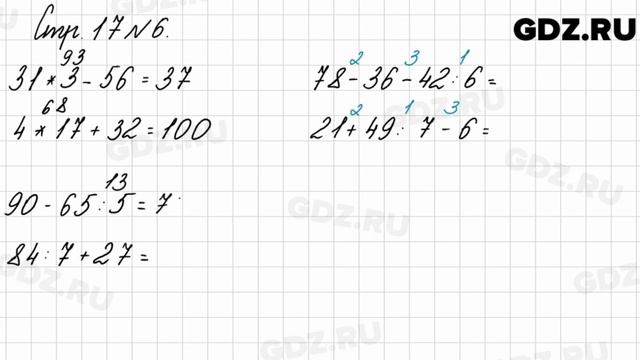 Стр. 17 № 6.
GDZ.RU
93
31 * 3 - 56 = 37
68
4 * 17 + 32 = 100
13
90 - 65 : 5 = 7
84 : 7 + 27 =
2 3 1
78 - 36 - 42 : 6 =
2 1 3
21 + 49 : 7 - 6 =
GDZ.RU
GDZ.RU
GDZ.RU
GDZ.RU
GDZ.RU
GDZ.RU